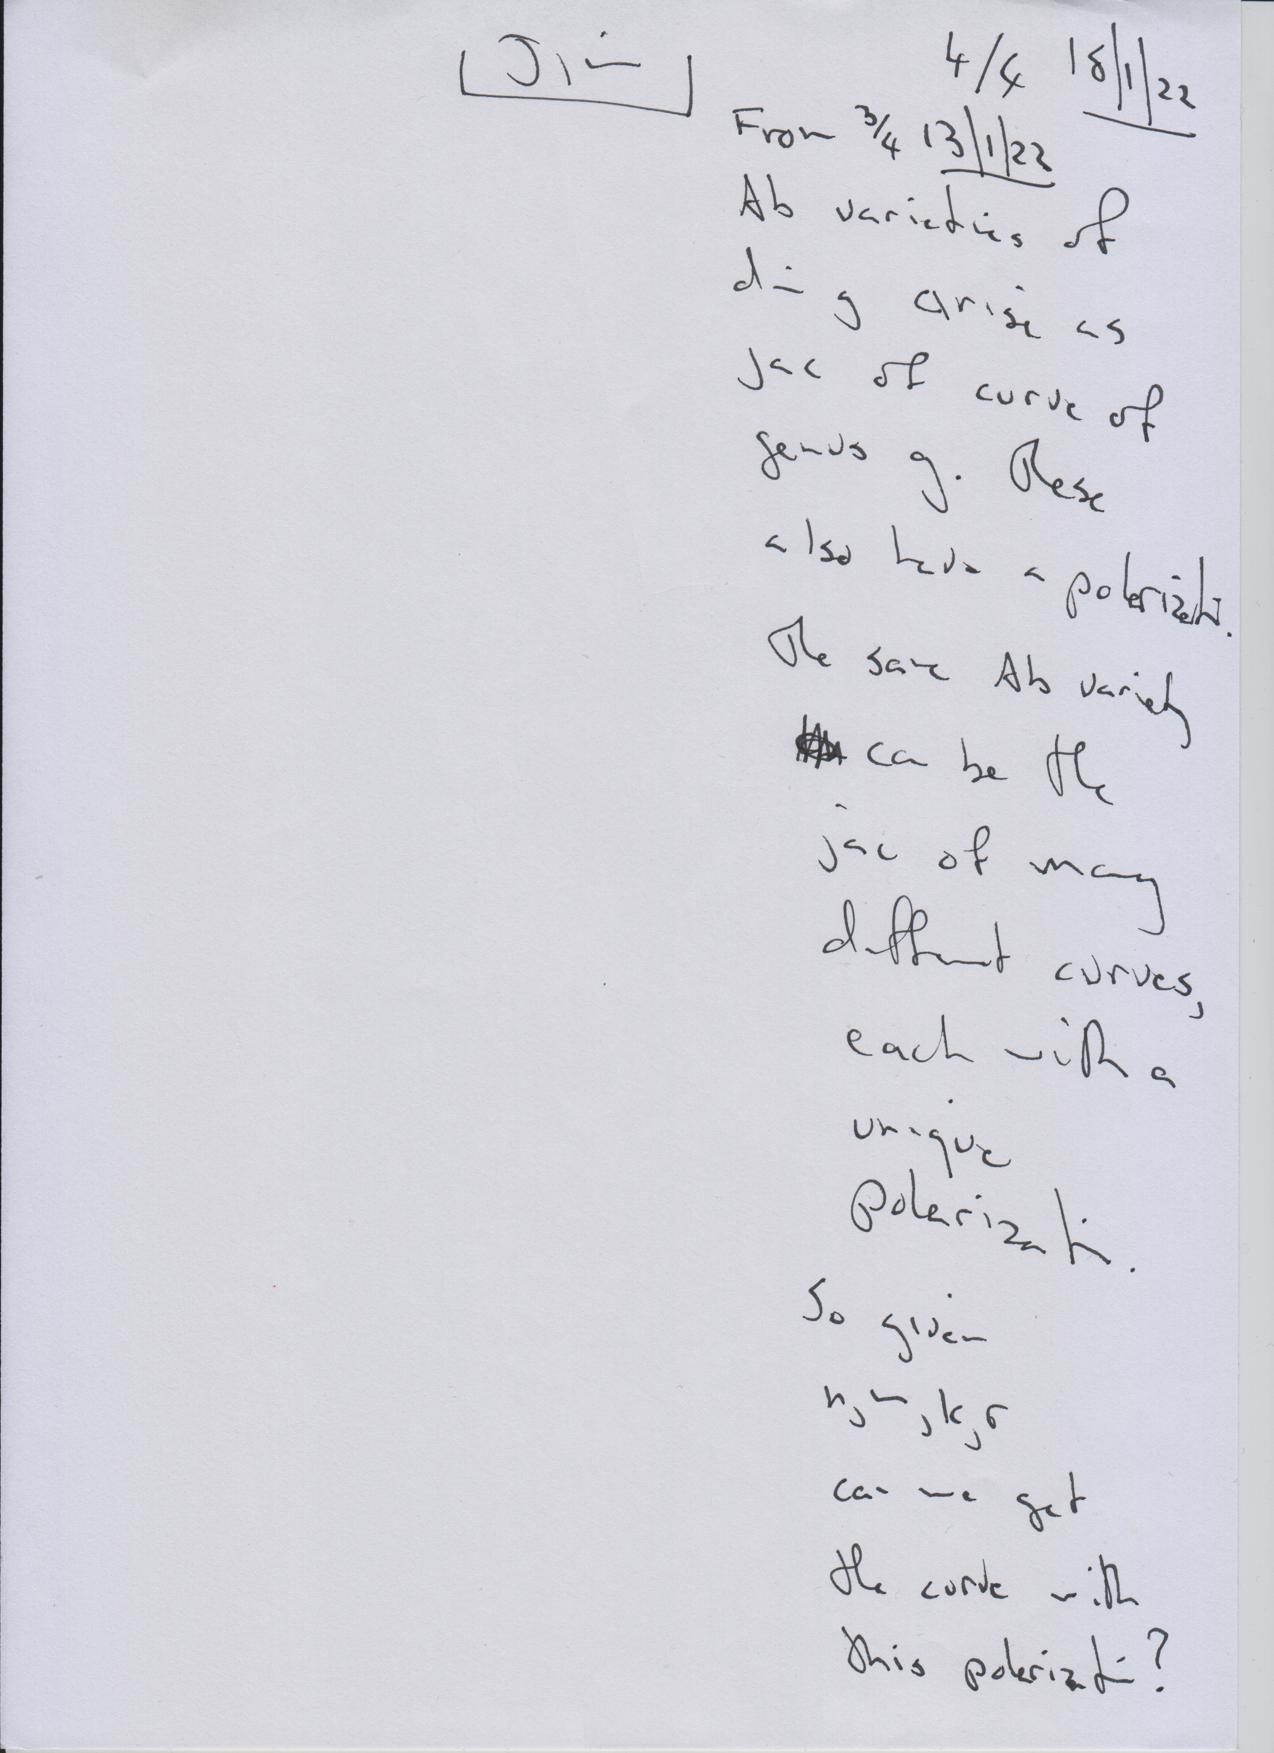 Jim
4/4 18/1/22
From 3/4 13/1/22
Ab varieties of
dim g arise as
jac of curve of
genus g. These
also have a polarization.
The same Ab variety
can be the
jac of many
different curves,
each with a
unique
polarization.
So given
n, m, k, r
can we get
the curve with
this polarization?